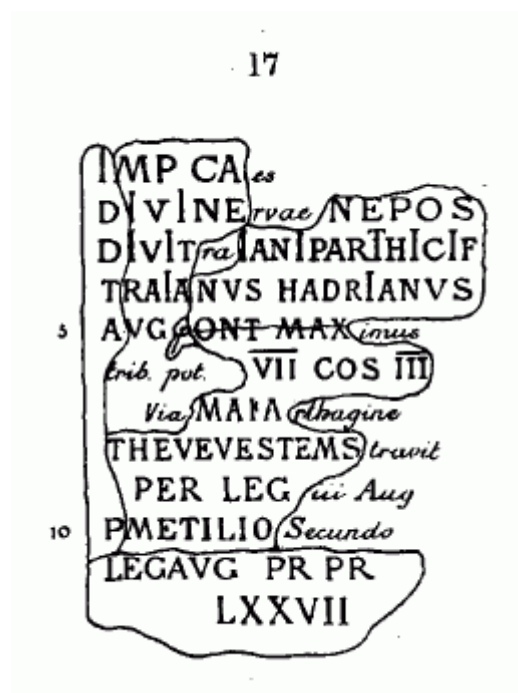 17
IMP CAes
DIVI NErvae NEPOS
DIVI TraIANI PARTHICI F
TRAIANVS HADRIANVS
5 AVG PONT MAXimus
trib. pot. VII COS III
Via MA KArthagine
THEVEVESTEMStravit
PER LEG iii Aug
10 PMETILIO Secundo
LEGAVG PR PR
LXXVII